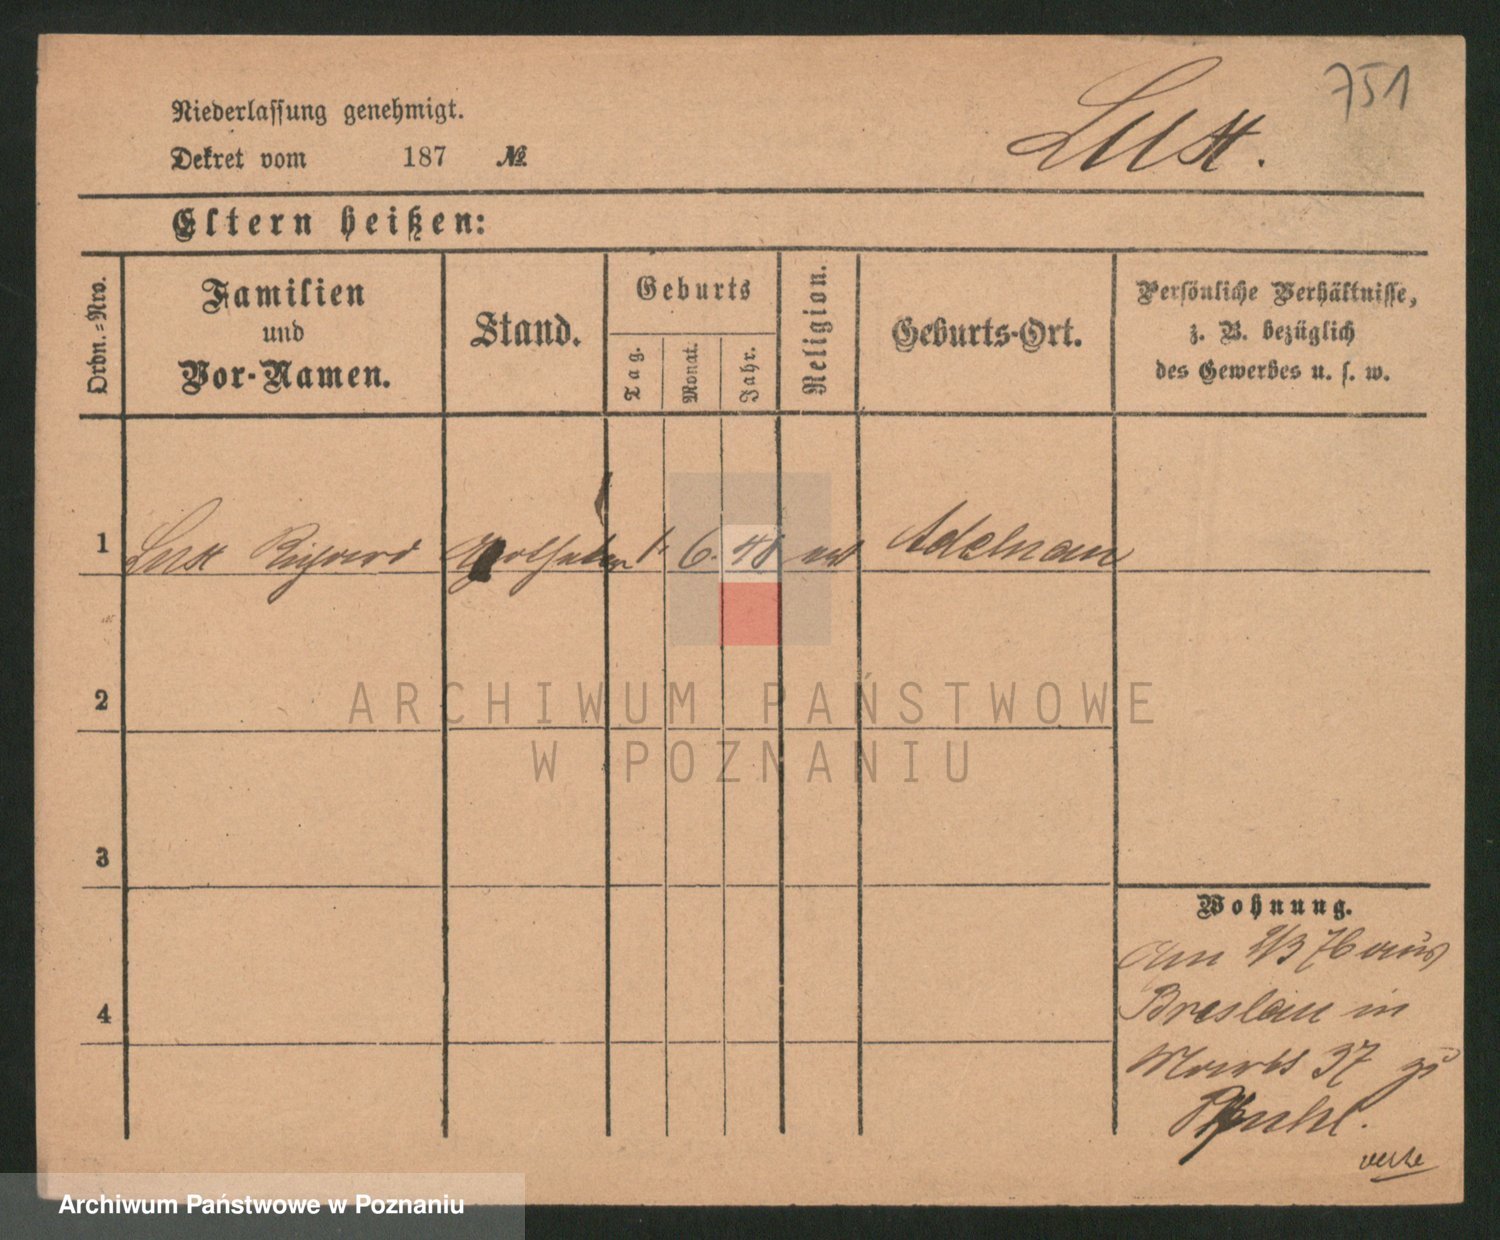 751
Lust.
Niederlassung genehmigt.
Dekret vom 187 №
Eltern heißen:
Ordn.-Nro.
Familien
und
Vor-Namen.
Stand.
Geburts
Tag.
Monat.
Jahr.
Religion.
Geburts-Ort.
Persönliche Verhältnisse,
z. B. bezüglich
des Gewerbes u. s. w.
1 Lust Richard Apotheker 1. 6. 48 Adelnau
2
3
4
Wohnung.
Am 2/3 76 aus
Breslau in
Markt 37 zu
verte
ARCHIWUM PAŃSTWOWE
W POZNANIU
Archiwum Państwowe w Poznaniu